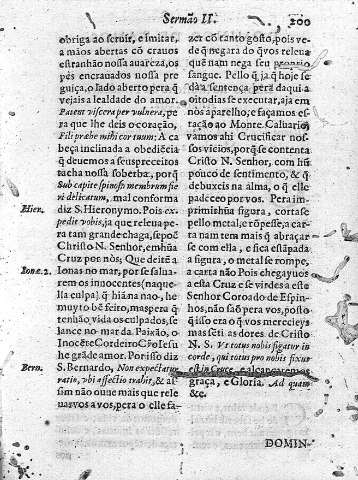 Sermão II.
200
obriga ao seruir, e imitar,
a mãos abertas cõ crauos
estranhão nossa auareza, os
pés encrauados nossa pre
guiça, o lado aberto pera q̃
vejais a lealdade do amor.
Patent viscera per vulnera, pe
ra que lhe deis o coração,
Fili præbe mihi cor tuum: A ca
beça inclinada a obediẽcia
q̃ deuemos a seus preceitos
tacha nossa soberba, porq̃
Sub capite spinoso membrum fie
ri delicatum, mal conforma
Hier.
diz S. Hieronymo. Pois ex-
pedit vobis, ja que releua pe-
ra tam grande chaga, se põ
Christo N. Senhor, em hũa
Cruz por nòs; Que deitẽ a
Ionæ. 2.
Ionas no mar, por se salua-
rem os innocentes (naque-
lla culpa) q̃ hiã na nao, he
muyto bẽ feito, mas pera q̃
tenhão vida os culpados, se
lance no mar da Paixão, o
Inocẽte Cordeiro Chro he su
he grãde amor. Por isso diz
Bern.
S. Bernardo, Non expectatur
ratio, vbi affectio trahit, & as
sim não ouue mais que rele
uar vos a vos, pera o elle fa-
zer cõ tanto gosto, pois ve-
de q̃ negara do q̃ vos releua
quẽ nam nega seu proprio
sangue. Pello q̃ ja q̃ hoje se
dà a sentença pera daqui
a oito dias se executar, aja em
nós aparelho; e façamos es-
tação ao Monte. Caluario
vamos ahi Crucificar nos-
sos vicios, porq̃ se contenta
Cristo N. Senhor, com hũ
pouco de sentimento, & q̃
debuxeis na alma, o q̃ elle
padece o por vos. Pera im-
primis hũa figura, cortase
pello metal, e rõpese, a car-
ta nam tem mais q̃ abraçar
se com ella, e fica estãpada
a figura, o metal se rompe,
a carta não Pois chegayuos
a esta Cruz e se virdes a este
Senhor Coroado de Espin-
hos, não saõ pera vos, posto
q̃ isso era o q̃ vos mereceys
mas seti as dores de Cristo
N. S. Vt totus nobis figatur in
corde, qui totus pro nobis fixus
est in Cruce, e alcançaremos
graça, e Gloria. Ad quam
&c.
DOMIN-